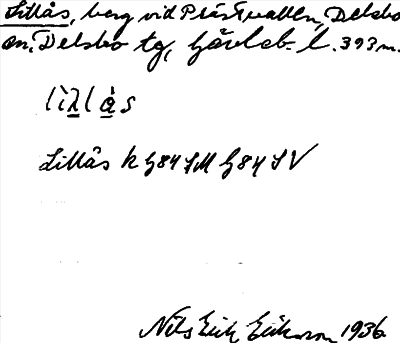 Lillås, berg vid Prästvallen, Delsbo
sn, Delsbo tg, Gävleb. l. 393 m.
lìlås
Lillås k G84 SM G84 SV
Nils Erik Eriksson 1936